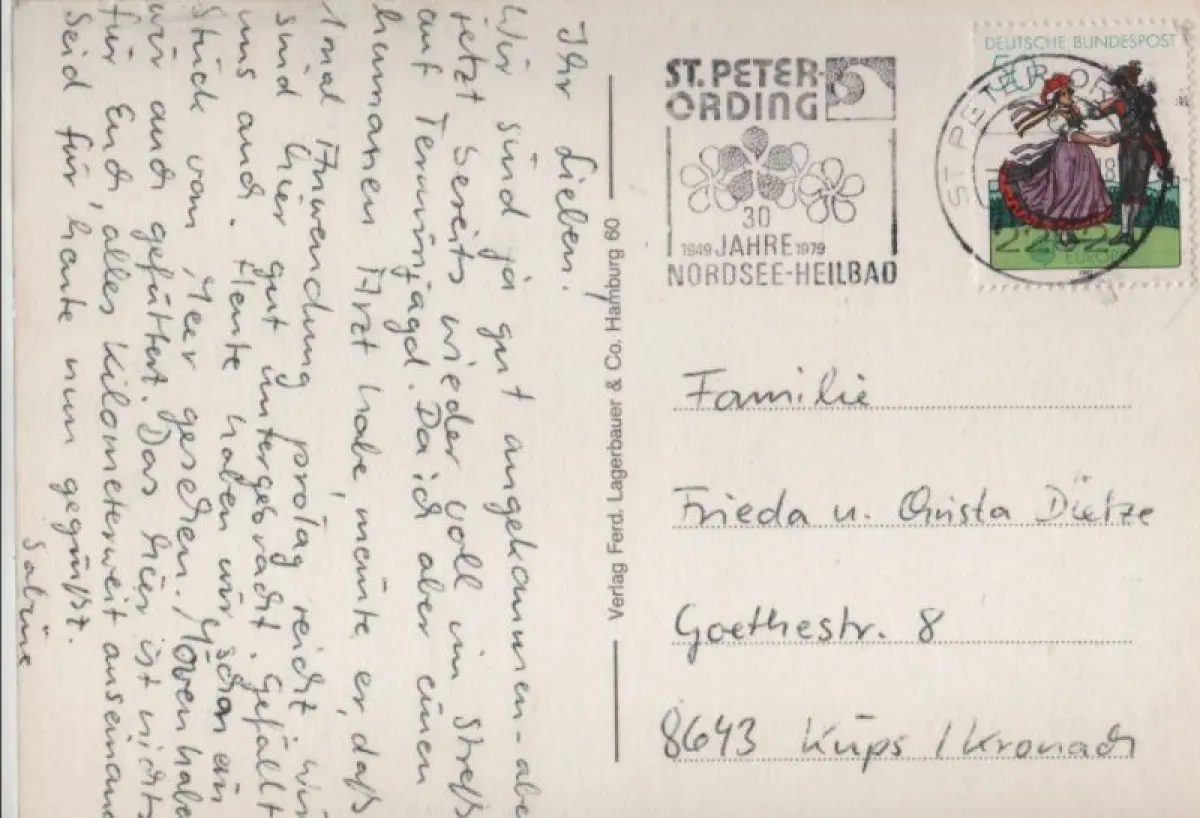 Ihr Lieben!
Wir sind ja gut angekommen - abe
jetzt bereits wieder voll im Streß
auf Terminjagd. Da ich aber einen
humanen Arzt habe, meinte er, daß
1 mal Anwendung pro Tag reicht. Wir
sind hier gut untergebracht. Gefällt
uns auch. Heute haben wir schon ein
Stück vom Meer gesehen. Möven habe
wir auch gefüttert. Das hier ist nichts
für Euch, alles kilometerweit auseinand
Seid für heute nun gegrüßt.
Sabine
Verlag Ferd. Lagerbauer & Co. Hamburg 60
ST. PETER-
ORDING
30
1949 JAHRE 1979
NORDSEE-HEILBAD
DEUTSCHE BUNDESPOST
ST PETER-OR
18
EUROPA
Familie
Frieda u. Christa Dietze
Goethestr. 8
8643 Küps / Kronach